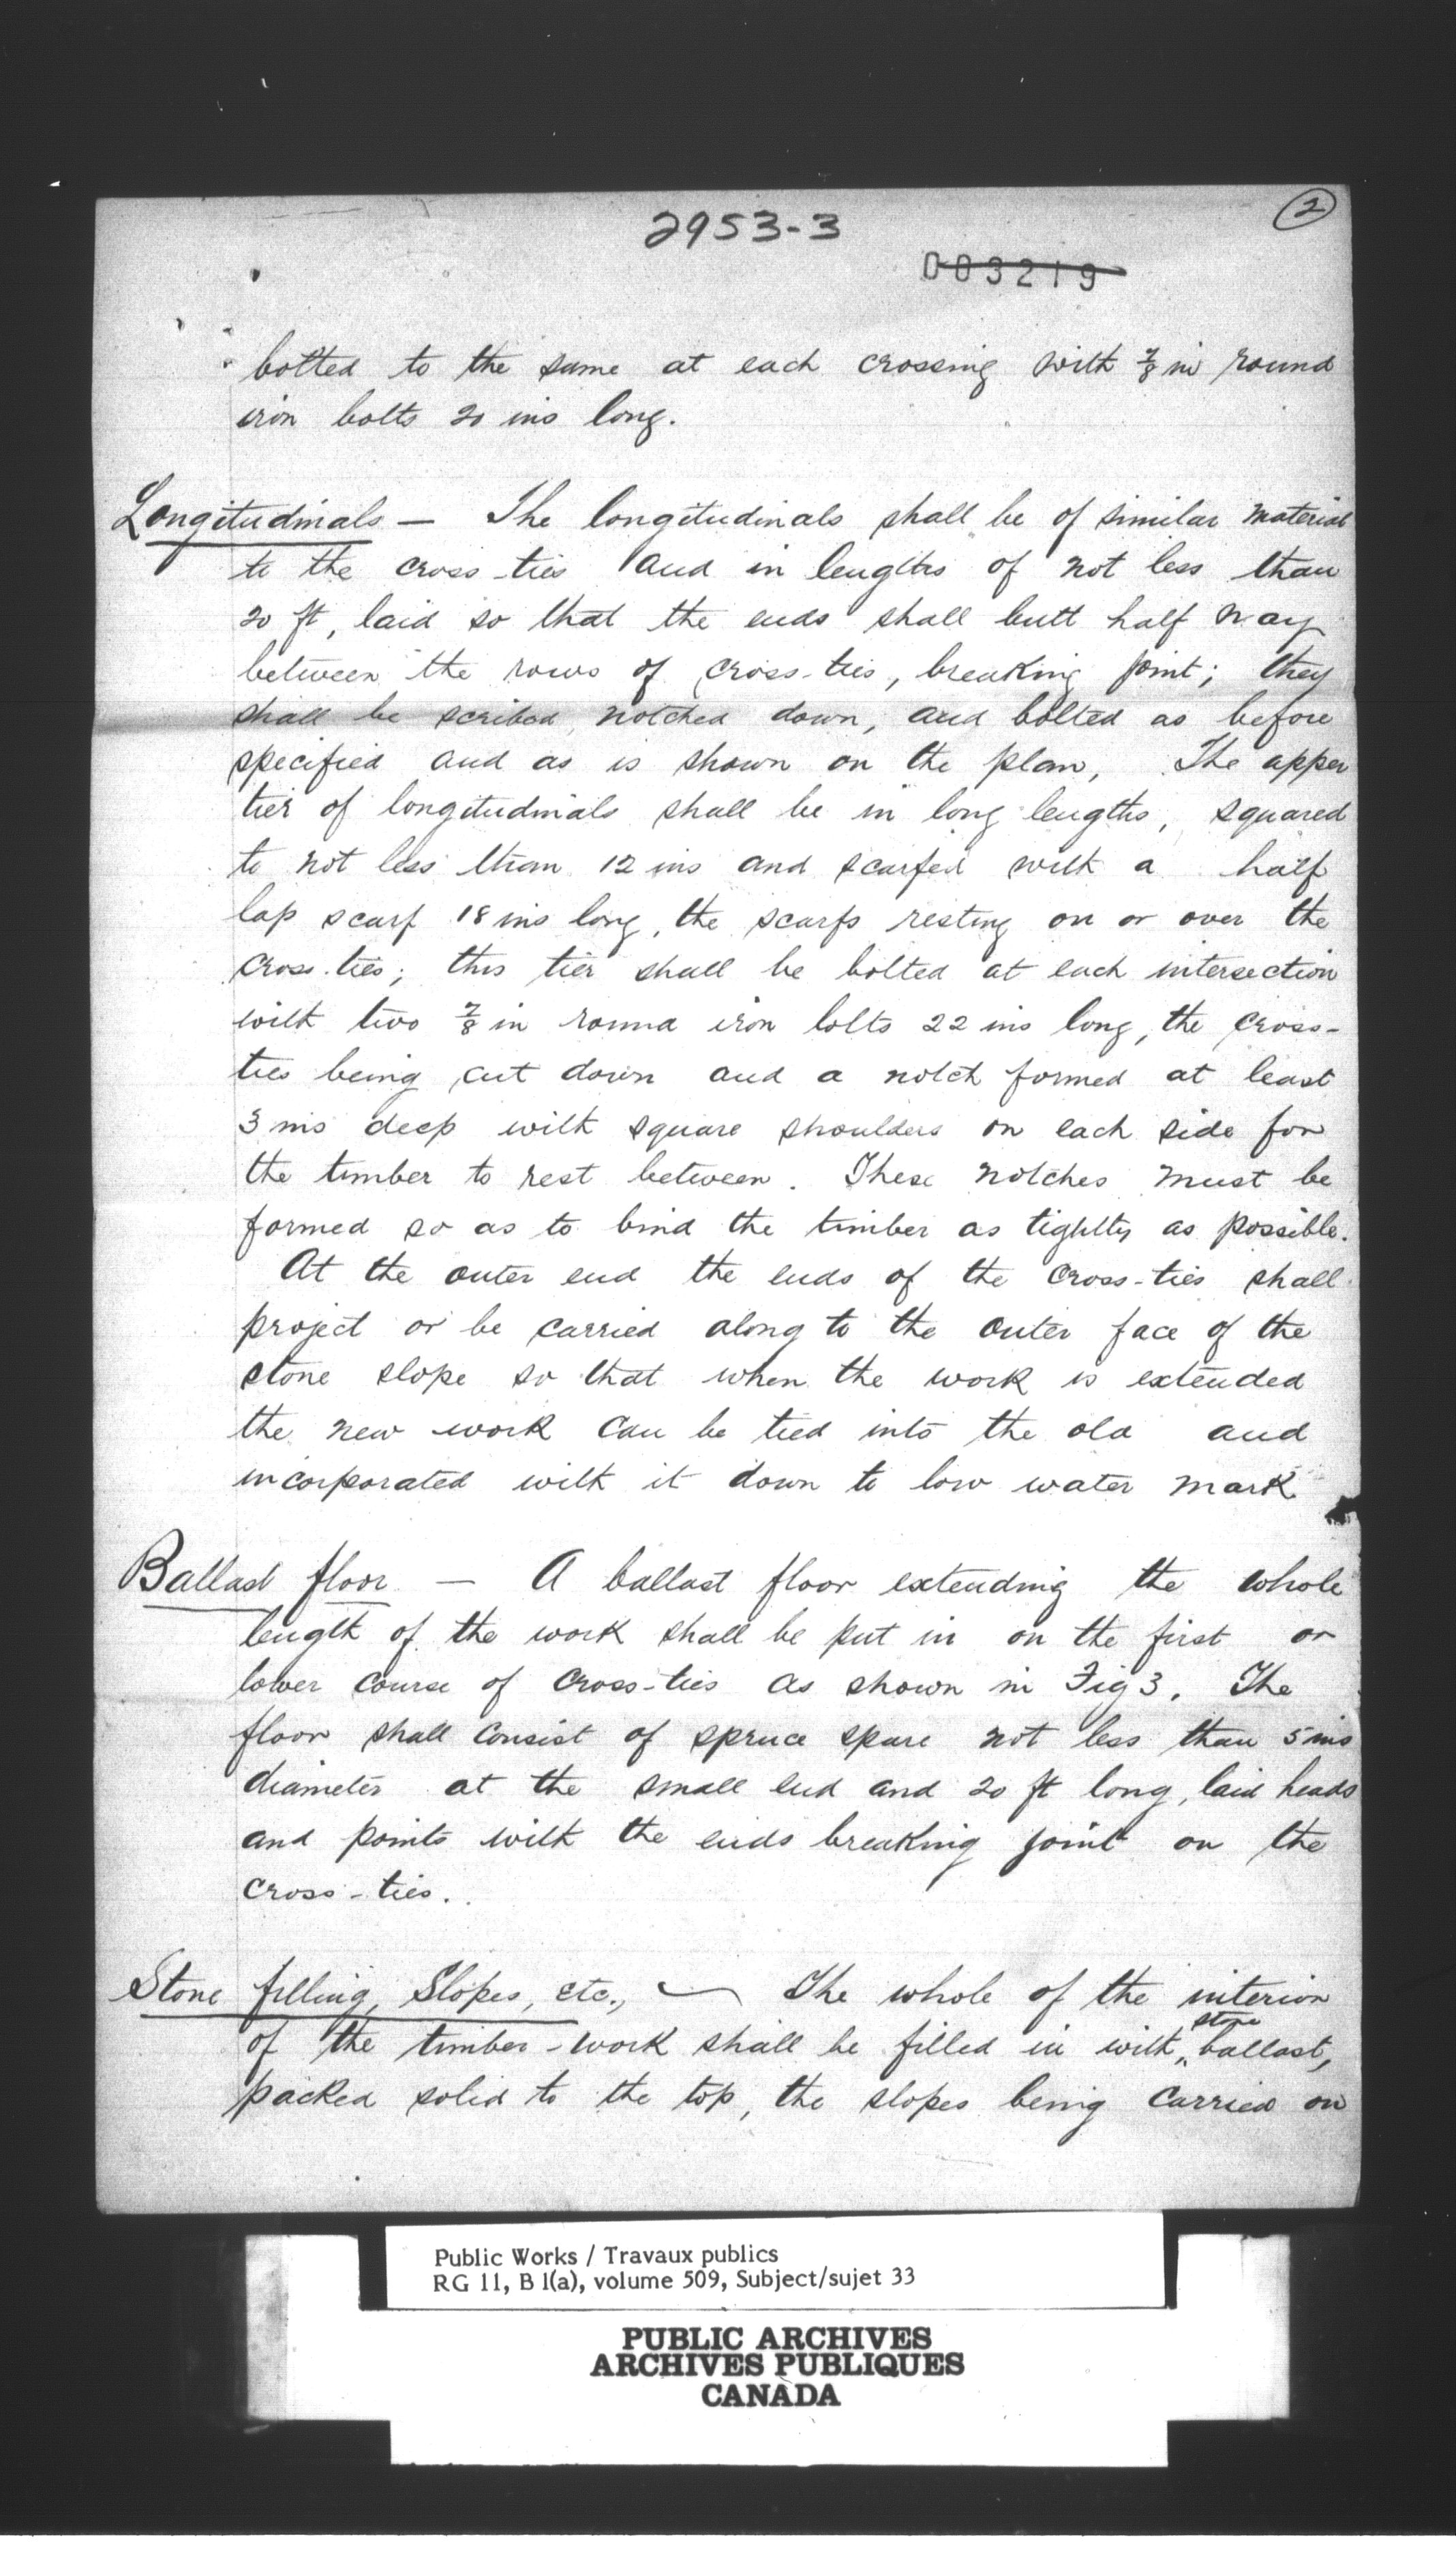 2953-3
2
003219
bolted to the same at each crossing with 7/8 in round
iron bolts 20 ins long.
Longitudinals — The longitudinals shall be of similar material
to the cross-ties and in lengths of not less than
20 ft, laid so that the ends shall butt half way
between the rows of cross-ties, breaking joint; they
shall be scribed, notched down, and bolted as before
specified and as is shown on the plan, The upper
tier of longitudinals shall be in long lengths, squared
to not less than 12 ins and scarfed with a half
lap scarf 18 ins long, the scarfs resting on or over the
cross-ties; this tier shall be bolted at each intersection
with two 7/8 in round iron bolts 22 ins long, the cross-
ties being cut down and a notch formed at least
3 ins deep with square shoulders on each side for
the timber to rest between. These notches must be
formed so as to bind the timber as tightly as possible.
At the outer end the ends of the cross-ties shall
project or be carried along to the outer face of the
stone slope so that when the work is extended
the new work can be tied into the old and
incorporated with it down to low water mark
Ballast floor — A ballast floor extending the whole
length of the work shall be put in on the first or
lower course of cross-ties as shown in Fig 3. The
floor shall consist of spruce spars not less than 5 ins
diameter at the small end and 20 ft long, laid heads
and points with the ends breaking joint on the
cross-ties.
Stone filling, Slopes, etc., — The whole of the interior
of the timber-work shall be filled in with stone ballast,
packed solid to the top, the slopes being carried on
Public Works / Travaux publics
RG 11, B 1(a), volume 509, Subject/sujet 33
PUBLIC ARCHIVES
ARCHIVES PUBLIQUES
CANADA